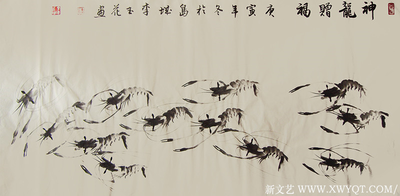 神龍贈福
庚寅年冬於島城李玉花畫
新文艺 WWW.XWYQT.COM/